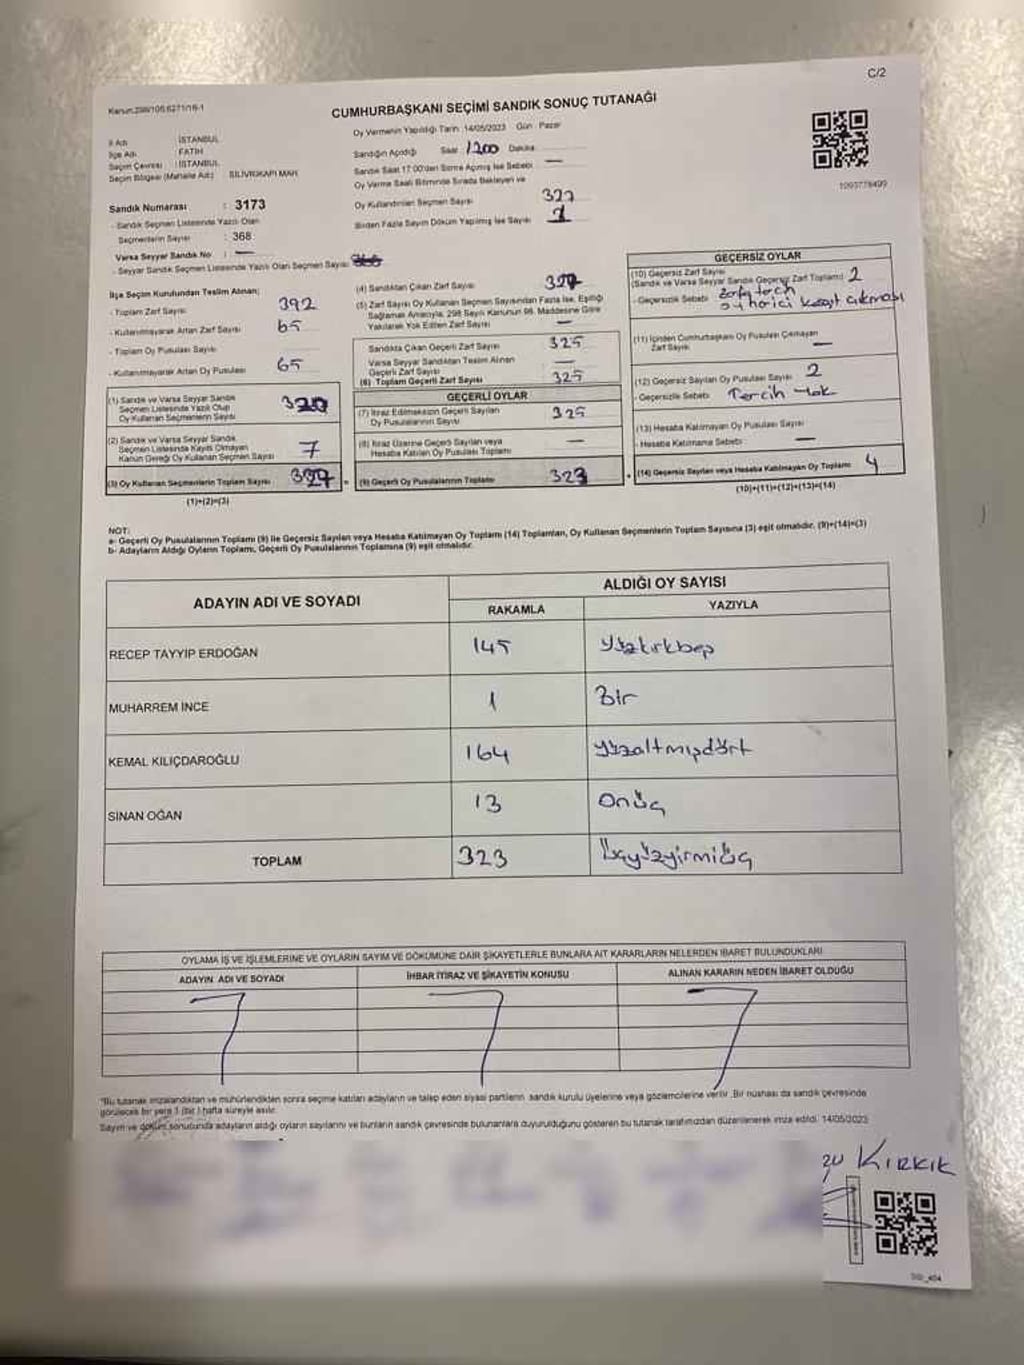 C/2
Kanun:298/105;6271/16-1
CUMHURBAŞKANI SEÇİMİ SANDIK SONUÇ TUTANAĞI
İl Adı : İSTANBUL
İlçe Adı : FATİH
Seçim Çevresi : İSTANBUL
Seçim Bölgesi (Mahalle Adı) : SİLİVRİKAPI MAH.
Oy Vermenin Yapıldığı Tarih : 14/05/2023 Gün : Pazar
Sandığın Açıldığı Saat : Dakika
Sandık Saat 17:00'den Sonra Açılmış İse Sebebi : —
Oy Verme Saati Bitiminde Sırada Bekleyen ve
Oy Kullandırılan Seçmen Sayısı
Birden Fazla Sayım Döküm Yapılmış İse Sayısı
1093778499
Sandık Numarası : 3173
- Sandık Seçmen Listesinde Yazılı Olan
Seçmenlerin Sayısı : 368
Varsa Seyyar Sandık No : —
- Seyyar Sandık Seçmen Listesinde Yazılı Olan Seçmen Sayısı:
İlçe Seçim Kurulundan Teslim Alınan;
- Toplam Zarf Sayısı : 392
- Kullanılmayarak Artan Zarf Sayısı : 65
- Toplam Oy Pusulası Sayısı :
- Kullanılmayarak Artan Oy Pusulası 65
(1) Sandık ve Varsa Seyyar Sandık
Seçmen Listesinde Yazılı Olup
Oy Kullanan Seçmenlerin Sayısı 320
(2) Sandık ve Varsa Seyyar Sandık
Seçmen Listesinde Kaydı Olmayan
Kanun Gereği Oy Kullanan Seçmen Sayısı 7
(3) Oy Kullanan Seçmenlerin Toplam Sayısı 327
(1)+(2)=(3)
(4) Sandıktan Çıkan Zarf Sayısı : 327
(5) Zarf Sayısı Oy Kullanan Seçmen Sayısından Fazla İse, Eşitliği
Sağlamak Amacıyla, 298 Sayılı Kanunun 98. Maddesine Göre
Yakılarak Yok Edilen Zarf Sayısı : —
Sandıkta Çıkan Geçerli Zarf Sayısı 325
Varsa Seyyar Sandıktan Teslim Alınan
Geçerli Zarf Sayısı —
(6) Toplam Geçerli Zarf Sayısı 325
GEÇERLİ OYLAR
(7) İtiraz Edilmeksizin Geçerli Sayılan
Oy Pusulalarının Sayısı
(8) İtiraz Üzerine Geçerli Sayılan veya
Hesaba Katılan Oy Pusulası Toplamı —
(9) Geçerli Oy Pusulalarının Toplamı 323
GEÇERSİZ OYLAR
(10) Geçersiz Zarf Sayısı
(Sandık ve Varsa Seyyar Sandık Geçersiz Zarf Toplamı) 2
- Geçersizlik Sebebi :
(11) İçinden Cumhurbaşkanı Oy Pusulası Çıkmayan
Zarf Sayısı —
(12) Geçersiz Sayılan Oy Pusulası Sayısı 2
- Geçersizlik Sebebi: Tercih Yok
(13) Hesaba Katılmayan Oy Pusulası Sayısı
- Hesaba Katılmama Sebebi: —
(14) Geçersiz Sayılan veya Hesaba Katılmayan Oy Toplamı 4
(10)+(11)+(12)+(13)=(14)
NOT:
a- Geçerli Oy Pusulalarının Toplamı (9) ile Geçersiz Sayılan veya Hesaba Katılmayan Oy Toplamı (14) Toplamları, Oy Kullanan Seçmenlerin Toplam Sayısına (3) eşit olmalıdır. (9)+(14)=(3)
b- Adayların Aldığı Oyların Toplamı, Geçerli Oy Pusulalarının Toplamına (9) eşit olmalıdır.
ADAYIN ADI VE SOYADI
ALDIĞI OY SAYISI
RAKAMLA YAZIYLA
RECEP TAYYIP ERDOĞAN 145 Yüzkırkbeş
MUHARREM İNCE 1 Bir
KEMAL KILIÇDAROĞLU 164 Yüzaltmışdört
SİNAN OĞAN 13 Onüç
TOPLAM 323 Üçyüzyirmiüç
OYLAMA İŞ VE İŞLEMLERİNE VE OYLARIN SAYIM VE DÖKÜMÜNE DAİR ŞİKAYETLERLE BUNLARA AİT KARARLARIN NELERDEN İBARET BULUNDUKLARI
ADAYIN ADI VE SOYADI İHBAR İTİRAZ VE ŞİKAYETİN KONUSU ALINAN KARARIN NEDEN İBARET OLDUĞU
*Bu tutanak imzalandıktan ve mühürlendikten sonra seçime katılan adayların ve talep eden siyasi partilerin sandık kurulu üyelerine veya gözlemcilerine verilir. Bir nüshası da sandık çevresinde
görülecek bir yere 1 (bir) hafta süreyle asılır.
Sayım ve döküm sonucunda adayların aldığı oyların sayılarını ve bunların sandık çevresinde bulunanlara duyurulduğunu gösteren bu tutanak tarafımızdan düzenlenerek imza edildi. 14/05/2023
KIRKIK